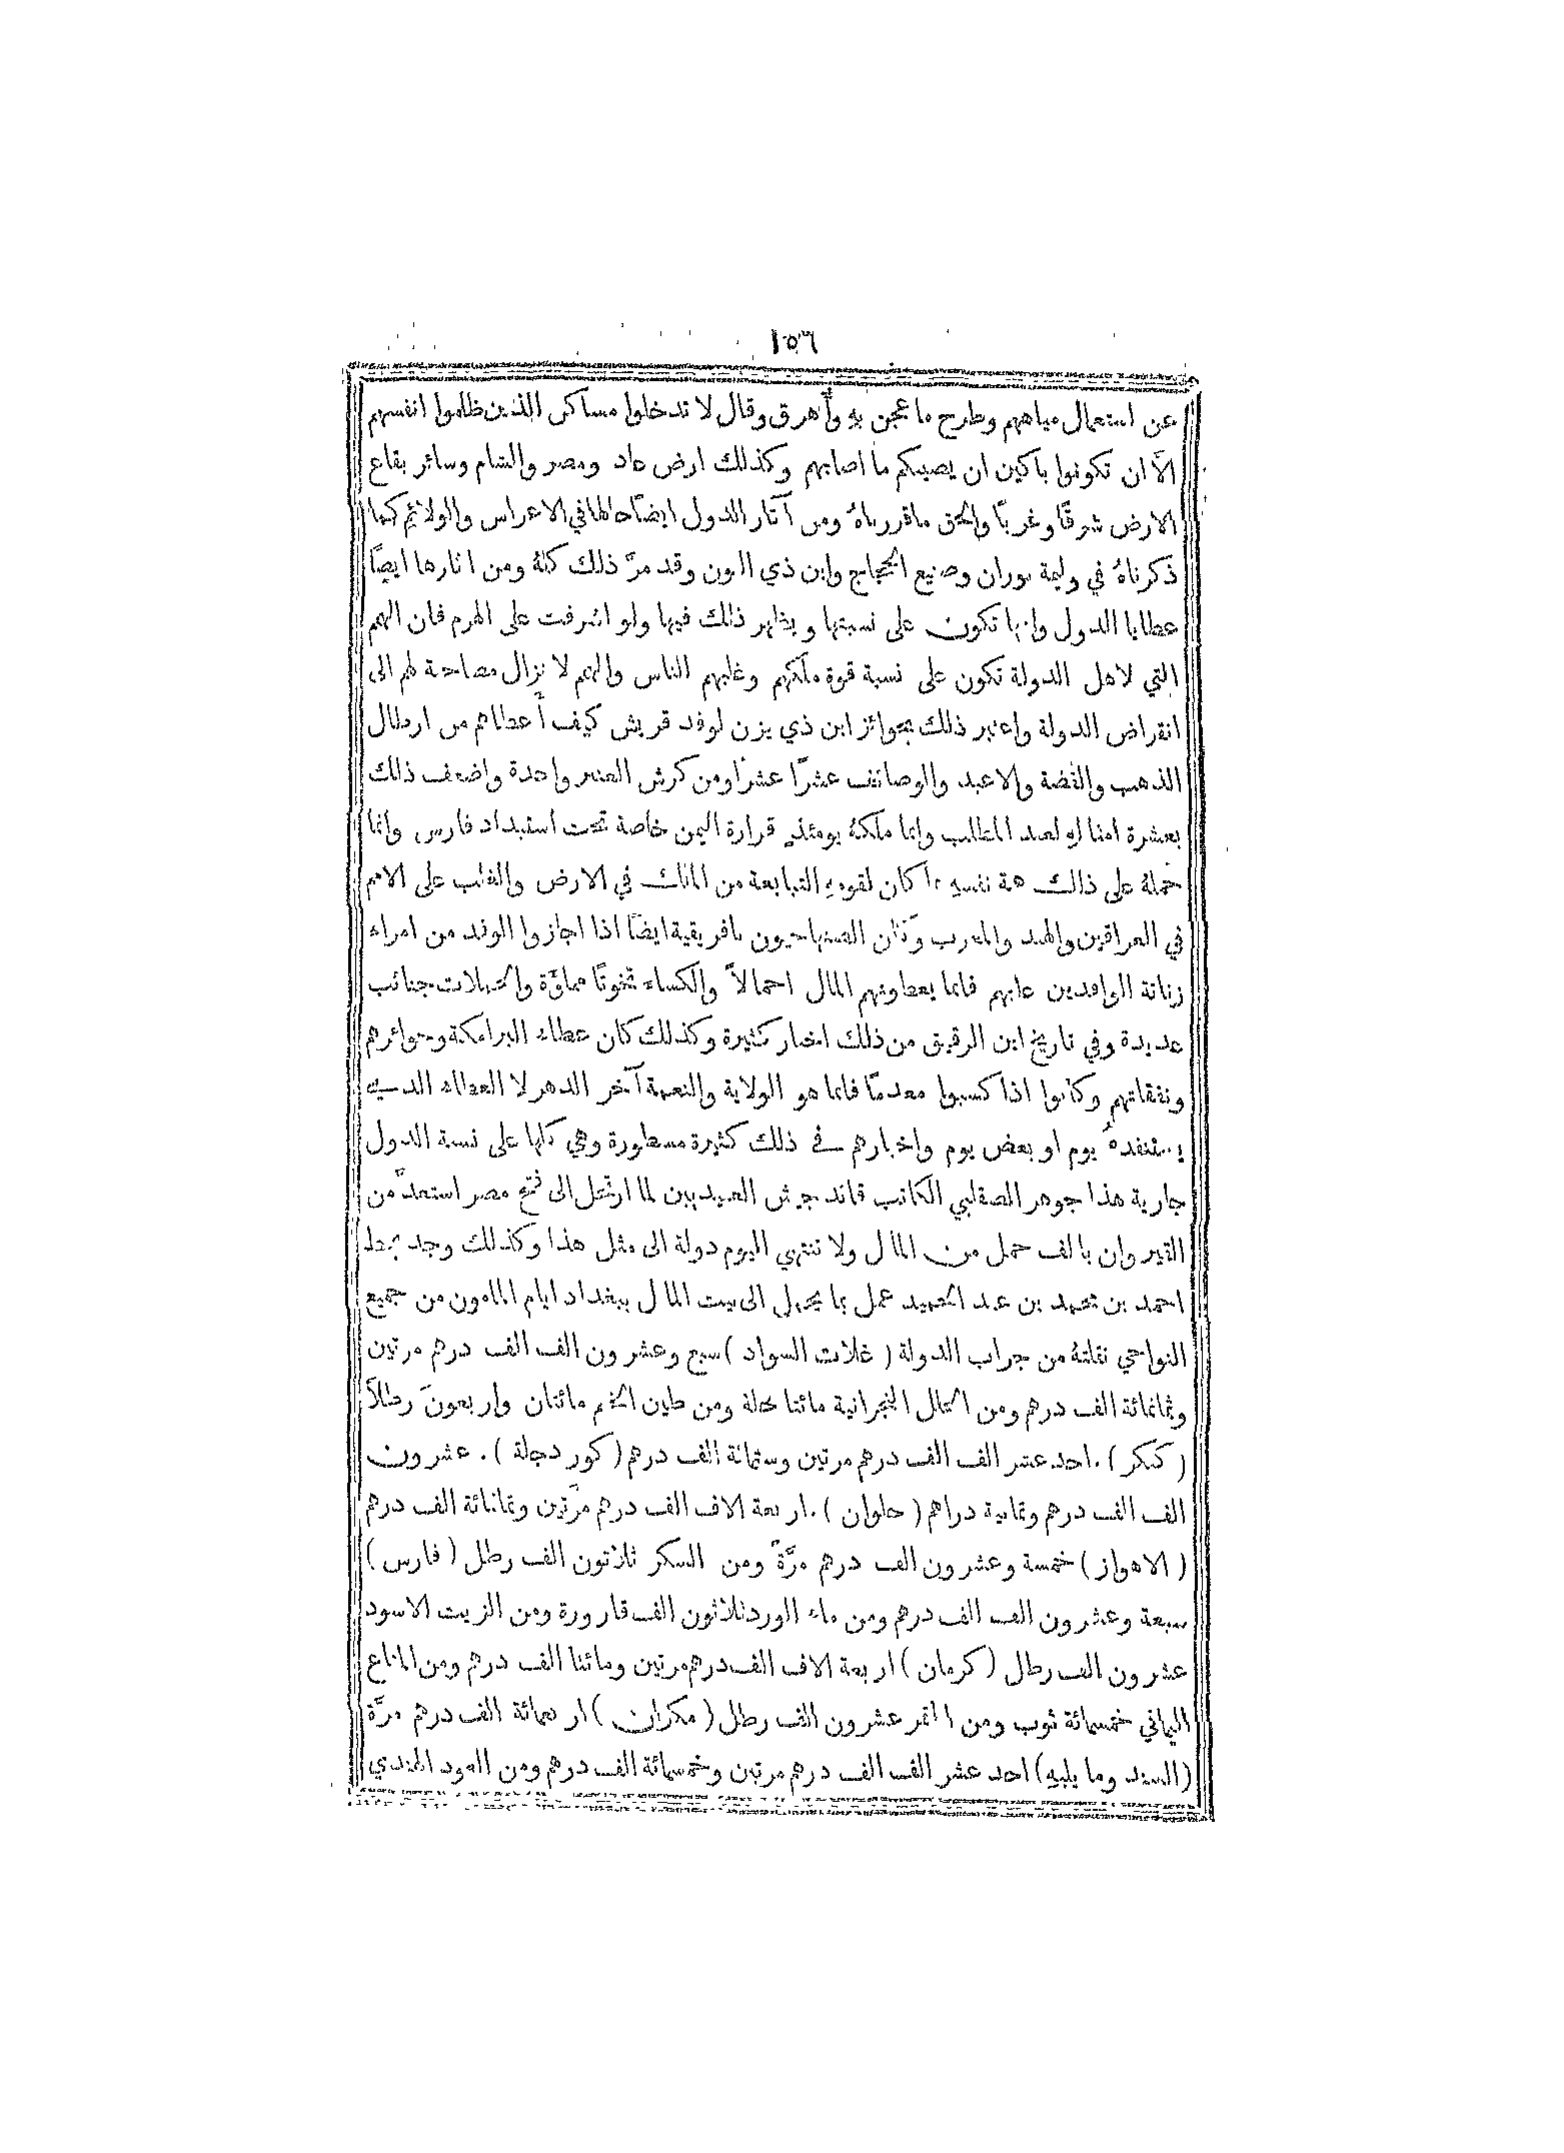 ١٥٦
عن استعمال مياههم وطرح ما عجن به وأهرق وقال لا تدخلوا مساكن الذين ظلموا انفسهم
الا ان تكونوا باكين ان يصيبكم ما اصابهم وكذلك ارض عاد ومصر والشام وسائر بقاع
الارض شرقًا وغربًا والحق ما قررناهُ ومن آثار الدول ايضًا حالها في الاعراس والولائم كما
ذكرناهُ في وليمة بوران وصنيع الحجاج وابن ذي النون وقد مرَّ ذلك كلهُ ومن اثارها ايضًا
عطايا الدول وانها تكون على نسبتها ويظهر ذلك فيها ولو اشرفت على الهرم فان الهمم
التي لاهل الدولة تكون على نسبة قوة ملكهم وغلبهم للناس والهمم لا تزال مصاحبة لهم الى
انقراض الدولة واعتبر ذلك بجوائز ابن ذي يزن لوفد قريش كيف أعطاهم من ارطال
الذهب والفضة والاعبد والوصائف عشرًا عشرًا ومن كرش العنبر واحدة واضعف ذلك
بعشرة امثاله لعبد المطلب وانما ملكهُ يومئذٍ قرارة اليمن خاصة تحت استبداد فارس وانما
حملهُ على ذلك همة نفسهِ بما كان لقومهِ التبابعة من الملك في الارض والغلب على الامم
في العراقين والهند والمغرب وكان الصنهاجيون بافريقية ايضًا اذا اجازوا الوفد من امراء
زناتة الوافدين عليهم فانما يعطونهم المال احمالاً والكساء تخوتًا مملوَّة والحملات جنائب
عديدة وفي تاريخ ابن الرقيق من ذلك اخبار كثيرة وكذلك كان عطاء البرامكة وجوائزهم
ونفقاتهم وكانوا اذا كسبوا معدمًا فانما هو الولاية والنعمة آخر الدهر لا العطاء الذي
يستنفدهُ يوم او بعض يوم واخبارهم في ذلك كثيرة مسطورة وهي كلها على نسبة الدول
جارية هذا جوهر الصقلبي الكاتب قائد جيش العبيديين لما ارتحل الى فتح مصر استعدَّ من
القيروان بالف حمل من المال ولا تنتهي اليوم دولة الى مثل هذا وكذلك وجد بخط
احمد بن محمد بن عبد الحميد عمل بما يحمل الى بيت المال ببغداد ايام المامون من جميع
النواحي نقلتهُ من جراب الدولة ( غلات السواد ) سبع وعشرون الف الف درهم مرتين
وثمانمائة الف درهم ومن الحلل النجرانية مائتا حلة ومن طين الختم مائتان واربعون رطلاً
( كسكر ) . احد عشر الف الف درهم مرتين وستمائة الف درهم ( كور دجلة ) . عشرون
الف الف درهم وثمانية دراهم ( حلوان ) . اربعة الاف الف درهم مرَّتين وثمانمائة الف درهم
( الاهواز ) خمسة وعشرون الف درهم مرَّةً ومن السكر ثلاثون الف رطل ( فارس )
سبعة وعشرون الف الف درهم ومن ماء الورد ثلاثون الف قارورة ومن الزيت الاسود
عشرون الف رطل ( كرمان ) اربعة الاف الف درهم مرتين ومائتا الف درهم ومن المتاع
اليماني خمسمائة ثوب ومن التمر عشرون الف رطل ( مكران ) اربعمائة الف درهم مرَّة
( السند وما يليهِ ) احد عشر الف الف درهم مرتين وخمسمائة الف درهم ومن العود الهندي